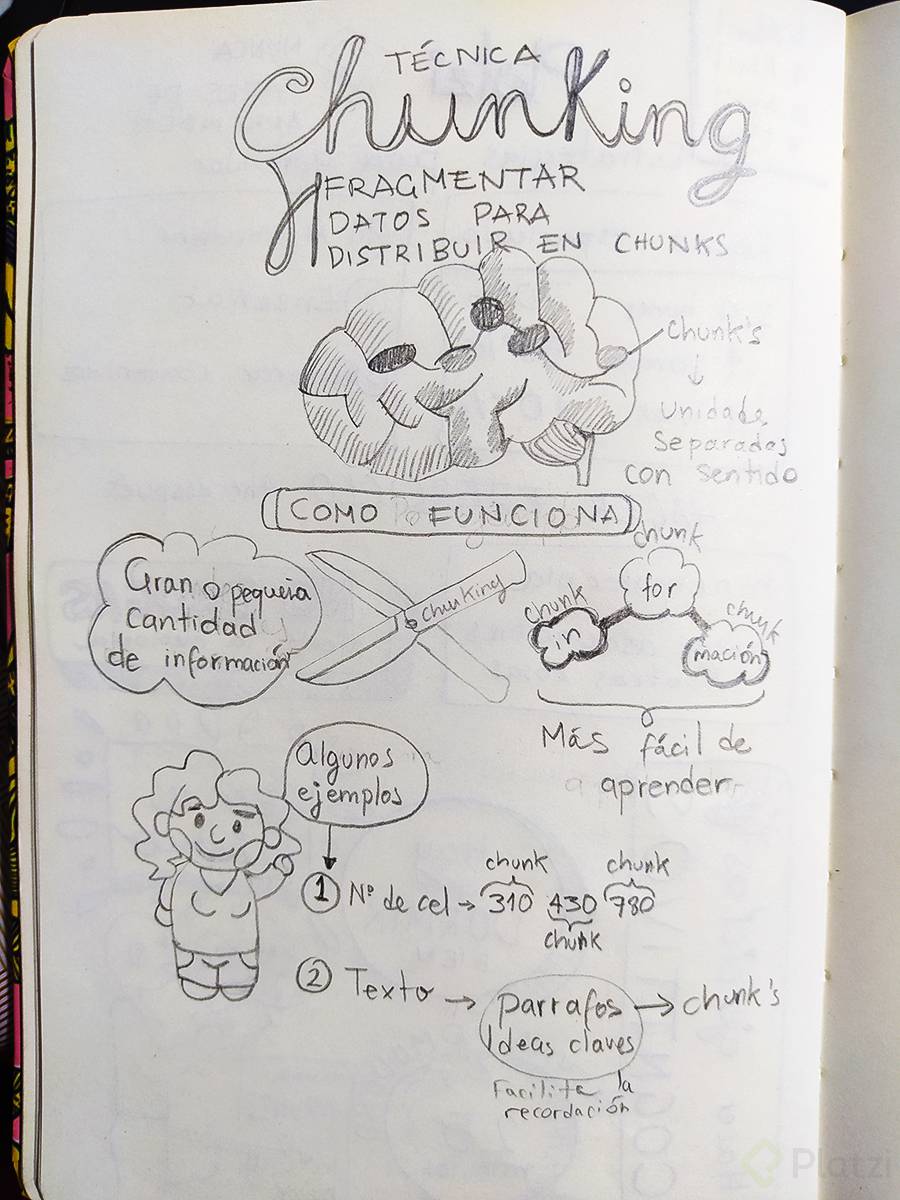 TÉCNICA
Chunking
FRAGMENTAR
DATOS PARA
DISTRIBUIR EN CHUNKS
chunk's
↓
Unidades
Separadas
con sentido
COMO FUNCIONA
Gran o pequeña
Cantidad
de información
chunking
chunk
in
chunk
for
chunk
mación
Más fácil de
aprender
Algunos
ejemplos
① Nº de cel → 310 430 780
chunk
chunk
chunk
② Texto → parrafos → chunk's
Ideas claves
Facilita la
recordación
Platzi